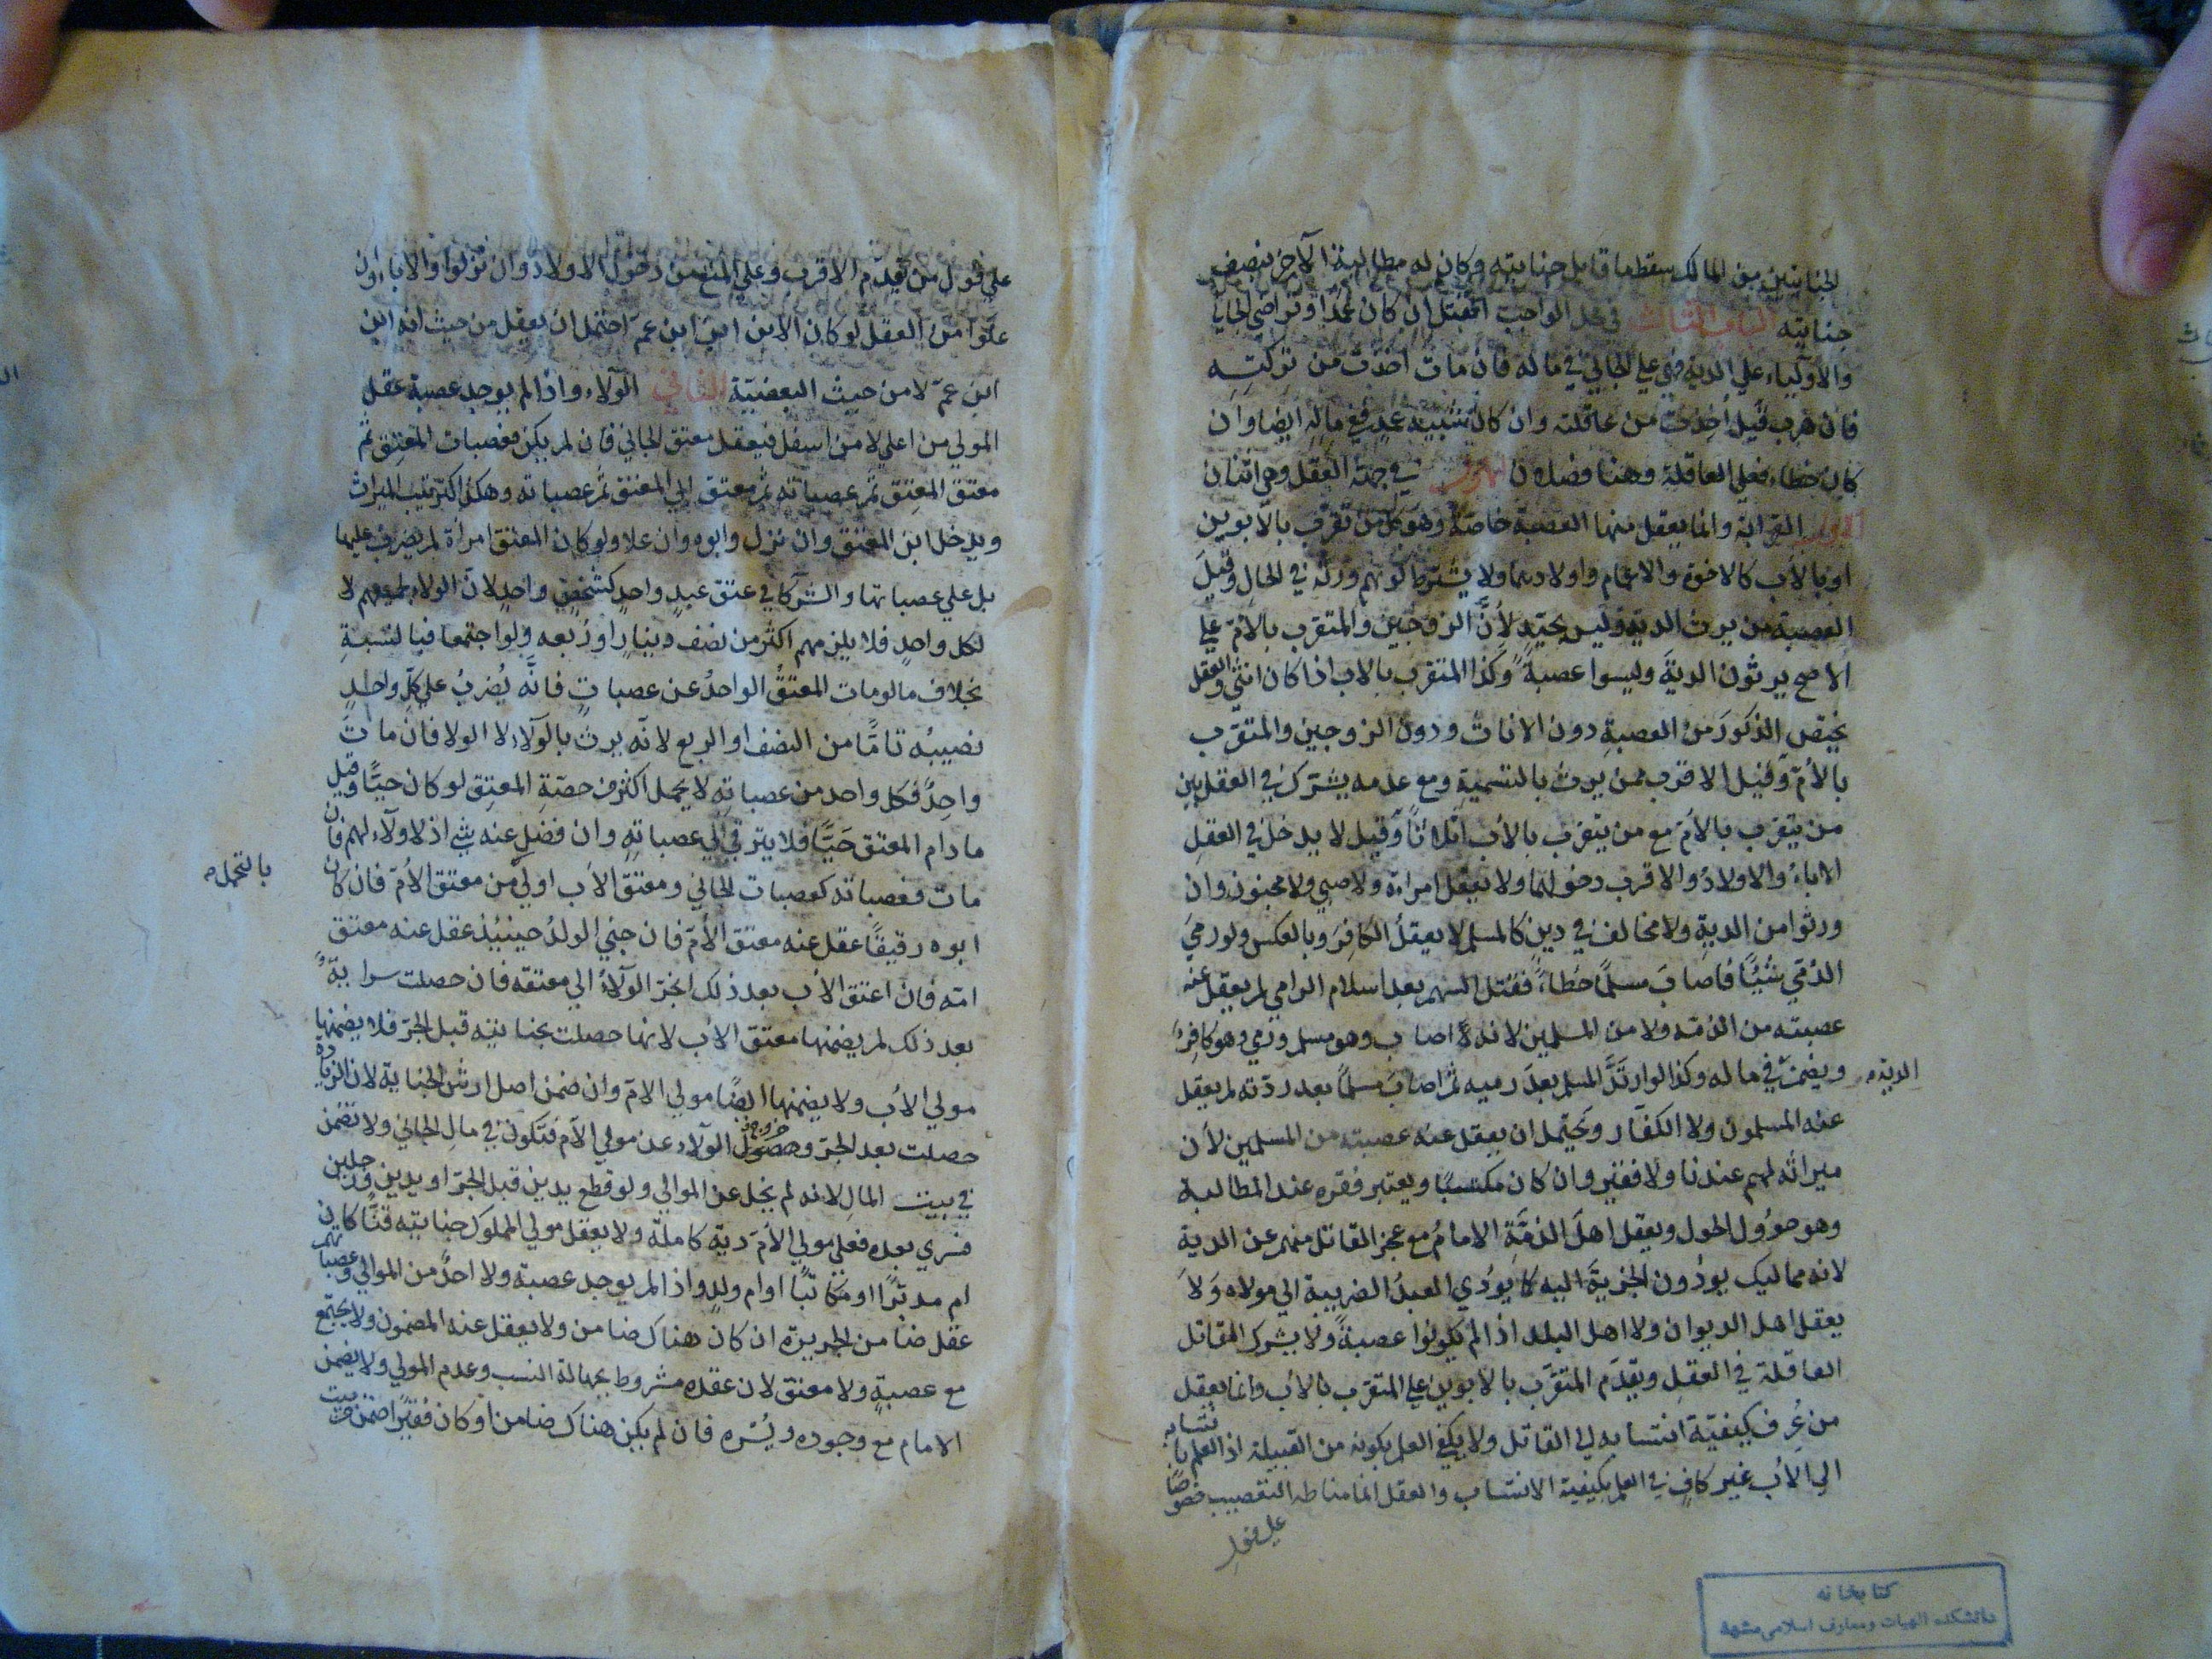 الجنايتين من المالك سقط ما قابل جنايته وكان له مطالبة الآخر بنصف
جنايته الباب الثالث في محل الواجب المقتل ان كان عمدًا وتراضي الجاني
والأولياء علي الدية فهي علي الجاني في ماله فان مات اخذت من تركته
فان هرب قيل أخذت من عاقلته وان كان شبيه عمد ففي ماله ايضا وان
كان خطاء فعلي العاقلة وهنا فصلان الاول في جهة العقل وهي اثنان
الاول القرابة وانما يعقل منها العصبة خاصّة وهو كل من تقرّب بالأبوين
او بالأب كالاخوة والاعمام واولادهما ولا يشترط كونهم ورثة في الحال وقيل
العصبة من يرث الدية وليس بجيّد لأنّ الزوجين والمتقرب بالأم علي
الاصح يرثون الدية وليسوا عصبةً وكذا المتقرب بالاب اذا كان انثي والعقل
يختص الذكور من العصبة دون الاناث ودون الزوجين والمتقرّب
بالأمّ وقيل الاقرب ممن يرث بالتسمية ومع عدمه يشترك في العقل بين
من يتقرب بالأمّ مع من يتقرب بالأب اثلاثًا وقيل لا يدخل في العقل
الاباء والاولاد والاقرب دخولهما ولا يعقل امراة ولا صبي ولا مجنون وان
ورثوا من الدية ولا مخالف في دين كالمسلم لا يعقل الكافر وبالعكس ولو رمي
الذمّي شيئًا فاصاب مسلمًا خطاءً فقتل السهم بعد اسلام الرامي لم يعقل عنه
عصبته من الذمّة ولا من المسلمين لانه اصاب وهو مسلم ورمي وهو كافر
ويضمن في ماله وكذا لو ارتدّ المسلم بعد رميه ثم اصاب مسلمًا بعد ردّته لم يعقل
الدية
عنه المسلمون ولا الكفّار ويحتمل ان يعقل عنه عصبته من المسلمين لأن
ميراثه لهم عندنا ولا فقير وان كان مكتسبًا ويعتبر فقره عند المطالبة
وهو حؤول الحول ويعقل اهل الذمّة الامام مع عجز القاتل منهم عن الدية
لانه مماليك يؤدون الجزية اليه كما يؤدي العبد الضريبة الي مولاه ولا
يعقل اهل الديوان ولا اهل البلد اذا لم يكونوا عصبةً ولا يشرك القاتل
العاقلة في العقل ويقدّم المتقرّب بالابوين علي المتقرّب بالأب وانما يعقل
من عُرف كيفيّة انتسابه الي القاتل ولا يكفي العلم بكونه من القبيلة اذ العلم بانتسابه
الي الأب غير كاف في العلم بكيفية الانتساب والعقل انما مناطه التعصيب خصوصًا
علي قول
كتابخانه
دانشكده الهيات ومعارف اسلامى مشهد
علي قول من يقدّم الاقرب وعلي المنع من دخول الاولاد وان نزلوا والاباء وان
علوا من العقل لو كان الابن ابن ابن عمّ احتمل ان يعقل من حيث انه ابن
ابن عمّ لا من حيث البعضيّة الثاني الولاء واذا لم يوجد عصبة عقل
المولي من اعلي لا من اسفل فيعقل معتق الجاني فان لم يكن فعصبات المعتق ثم
معتق المعتق ثم عصباته ثم معتق ابي المعتق ثم عصباته وهكذا كترتيب الميراث
ويدخل ابن المعتق وان نزل وابوه وان علا ولو كان المعتق امراة لم يضرب عليها
بل علي عصباتها والشركا في عتق عبد واحد كشخص واحد لان الولاء لجميعهم لا
لكل واحد فلا يلزمهم اكثر من نصف دينار او ربعه ولو اجتمعا فبالنسبة
بخلاف ما لو مات المعتق الواحد عن عصبات فانّه يُضرب علي كل واحد
نصيبُه تامًا من النصف او الربع لانّه يرث بالولاء لا الولا فان مات
واحدٌ فكل واحد من عصباته لا يحمل اكثر من حصّة المعتق لو كان حيًّا وقيل
ما دام المعتق حيًّا فلا يترقي الي عصباته وان فضل عنه شي اذ لا ولاء لهم فان
مات فعصباته كعصبات الجاني ومعتق الأب اولي من معتق الأمّ فان كان
بالتحمل
ابوه رقيقًا عقل عنه معتق الأمّ فان جني الولد حينئذ عقل عنه معتق
امّه فان اعتق الأب بعد ذلك انجرّ الولاء الي معتقه فان حصلت سراية
بعد ذلك لم يضمنها معتق الأب لانها حصلت بجناية قبل الجرّ فلا يضمنها
مولي الأب ولا يضمنها ايضًا مولي الامّ وان ضمن اصل ارش الجناية لان الزيادة
حصلت بعد الجرّ وخروج الولاء عن مولي الأم فتكون في مال الجاني ولا تضمن
في بيت المال لانه لم يخل عن الموالي ولو قطع يدين قبل الجرّ او يدين ورجلين
فسري بعده فعلي مولي الأمّ دية كاملة ولا يعقل مولي المملوك جنايته قنًّا كان
ام مدبّرًا او مكاتبًا او ام ولد واذا لم يوجد عصبة ولا احدٌ من الموالي وعصباتهم
عقل ضامن الجريرة ان كان هناك ضامن ولا يعقل عنه المضمون ولا يجتمع
مع عصبة ولا معتق لان عقده مشروط بجهالة النسب وعدم المولي ولا يضمن
الامام مع وجوده ويُسْره فان لم يكن هناك ضامن او كان فقيرًا ضمن من بيت